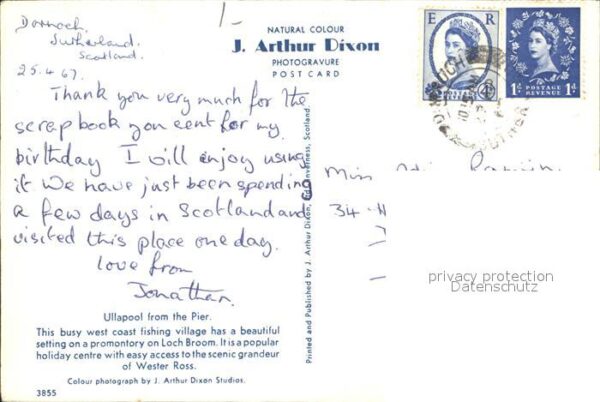 1/-
Dornoch,
Sutherland.
Scotland.
25.4.67.
Thank you very much for the
scrap book you cent for my
birthday I will enjoy using
it We have just been spending
a few days in Scotland and
visited this place one day.
love from
Jonathan.
NATURAL COLOUR
J. Arthur Dixon
PHOTOGRAVURE
POST CARD
E R
4D
POSTAGE
REVENUE
1D 1D
POSTAGE
REVENUE
DORNOCH
Miss
34
privacy protection
Datenschutz
Printed and Published by J. Arthur Dixon, Inverness, Scotland.
Ullapool from the Pier.
This busy west coast fishing village has a beautiful
setting on a promontory on Loch Broom. It is a popular
holiday centre with easy access to the scenic grandeur
of Wester Ross.
Colour photograph by J. Arthur Dixon Studios.
3855